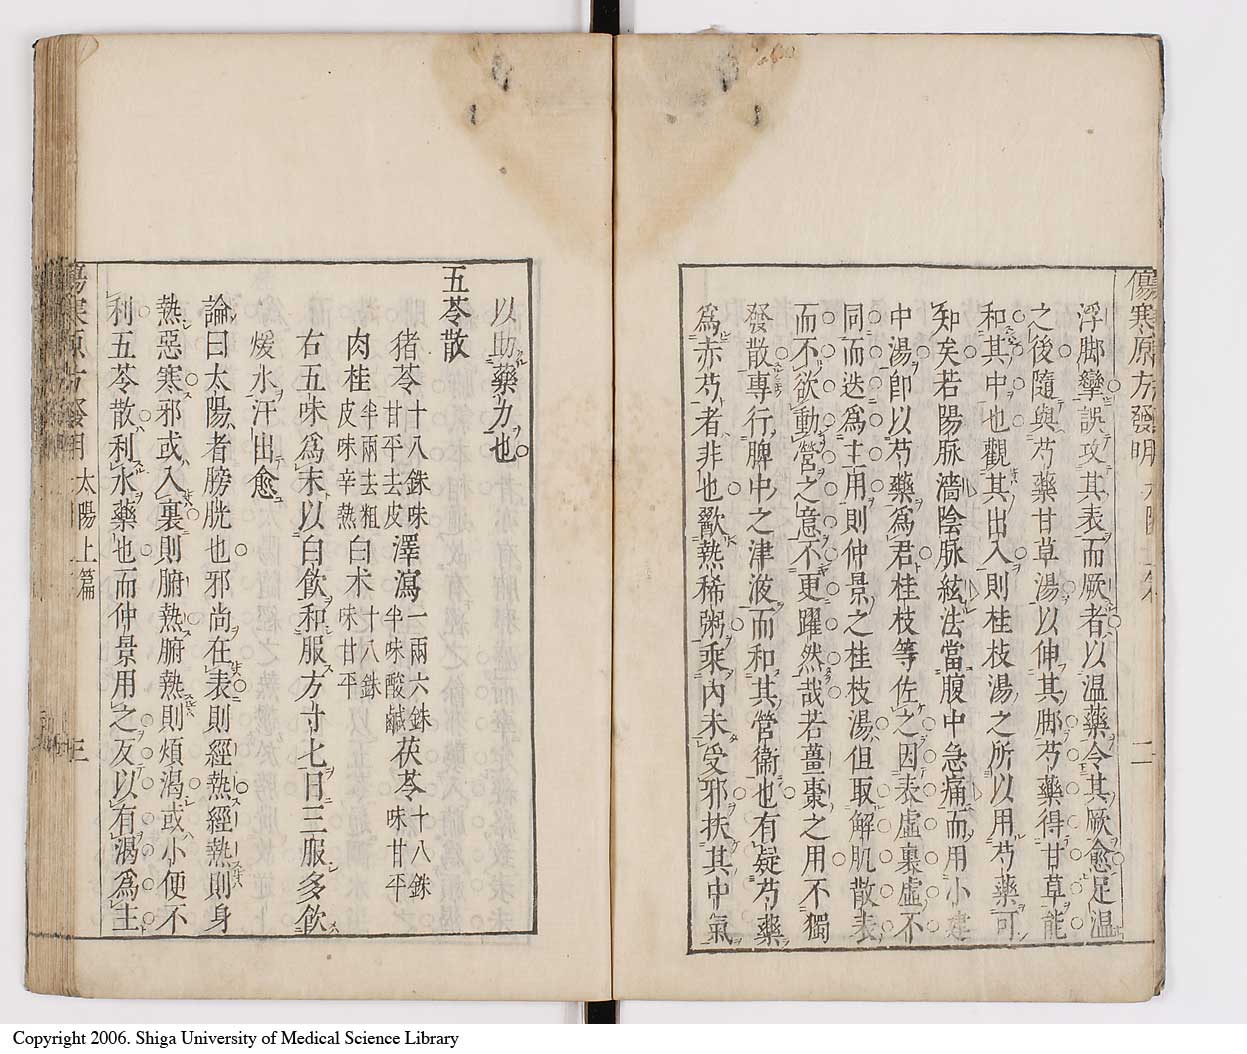 傷寒原方發明
二
浮脚攣誤攻其表而厥者以温藥令其厥愈足温
之後隨與芍藥甘草湯以伸其脚芍藥得甘草能
和其中也觀其出入則桂枝湯之所以用芍藥可
知矣若陽脉濇陰脉絃法當腹中急痛而用小建
中湯卽以芍藥爲君桂枝等佐之因表虛裏虛不
同而迭爲主用則仲景之桂枝湯但取解肌散表
而不欲動營之意不更躍然哉若薑棗之用不獨
發散專行脾中之津液而和其營衞也有疑芍藥
爲赤芍者非也歠熱稀粥乘內未受邪扶其中氣
以助藥力也
五苓散
猪苓十八銖味甘平去皮澤瀉一兩六銖半味酸鹹茯苓十八銖味甘平
肉桂半兩去粗皮味辛熱白朮十八銖味甘平
右五味爲末以白飲和服方寸七日三服多飲
煖水汗出愈
論曰太陽者膀胱也邪尚在表則經熱經熱則身
熱惡寒邪或入裏則腑熱腑熱則煩渴或小便不
利五苓散利水藥也而仲景用之反以有渴爲主
傷寒原方發明
太陽上篇
三